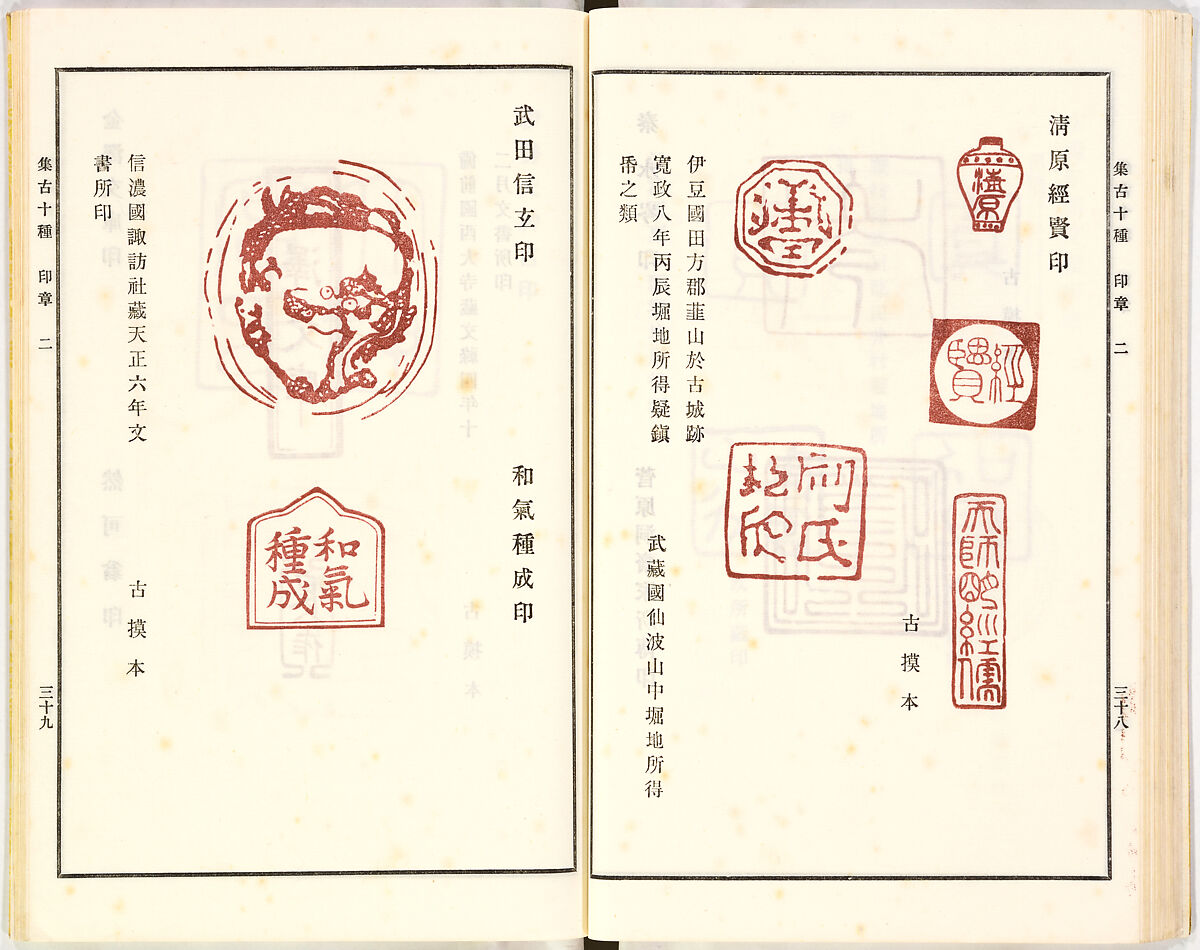 集古十種　印章　二
三十八
清原經賢印
清原
經賢
天師明經儒
古摸本
伊豆國田方郡韮山於古城跡
寛政八年丙辰堀地所得疑鎭
帋之類
武藏國仙波山中堀地所得
武田信玄印
信濃國諏訪社藏天正六年文
書所印
和氣種成印
和氣
種成
古摸本
集古十種　印章　二
三十九